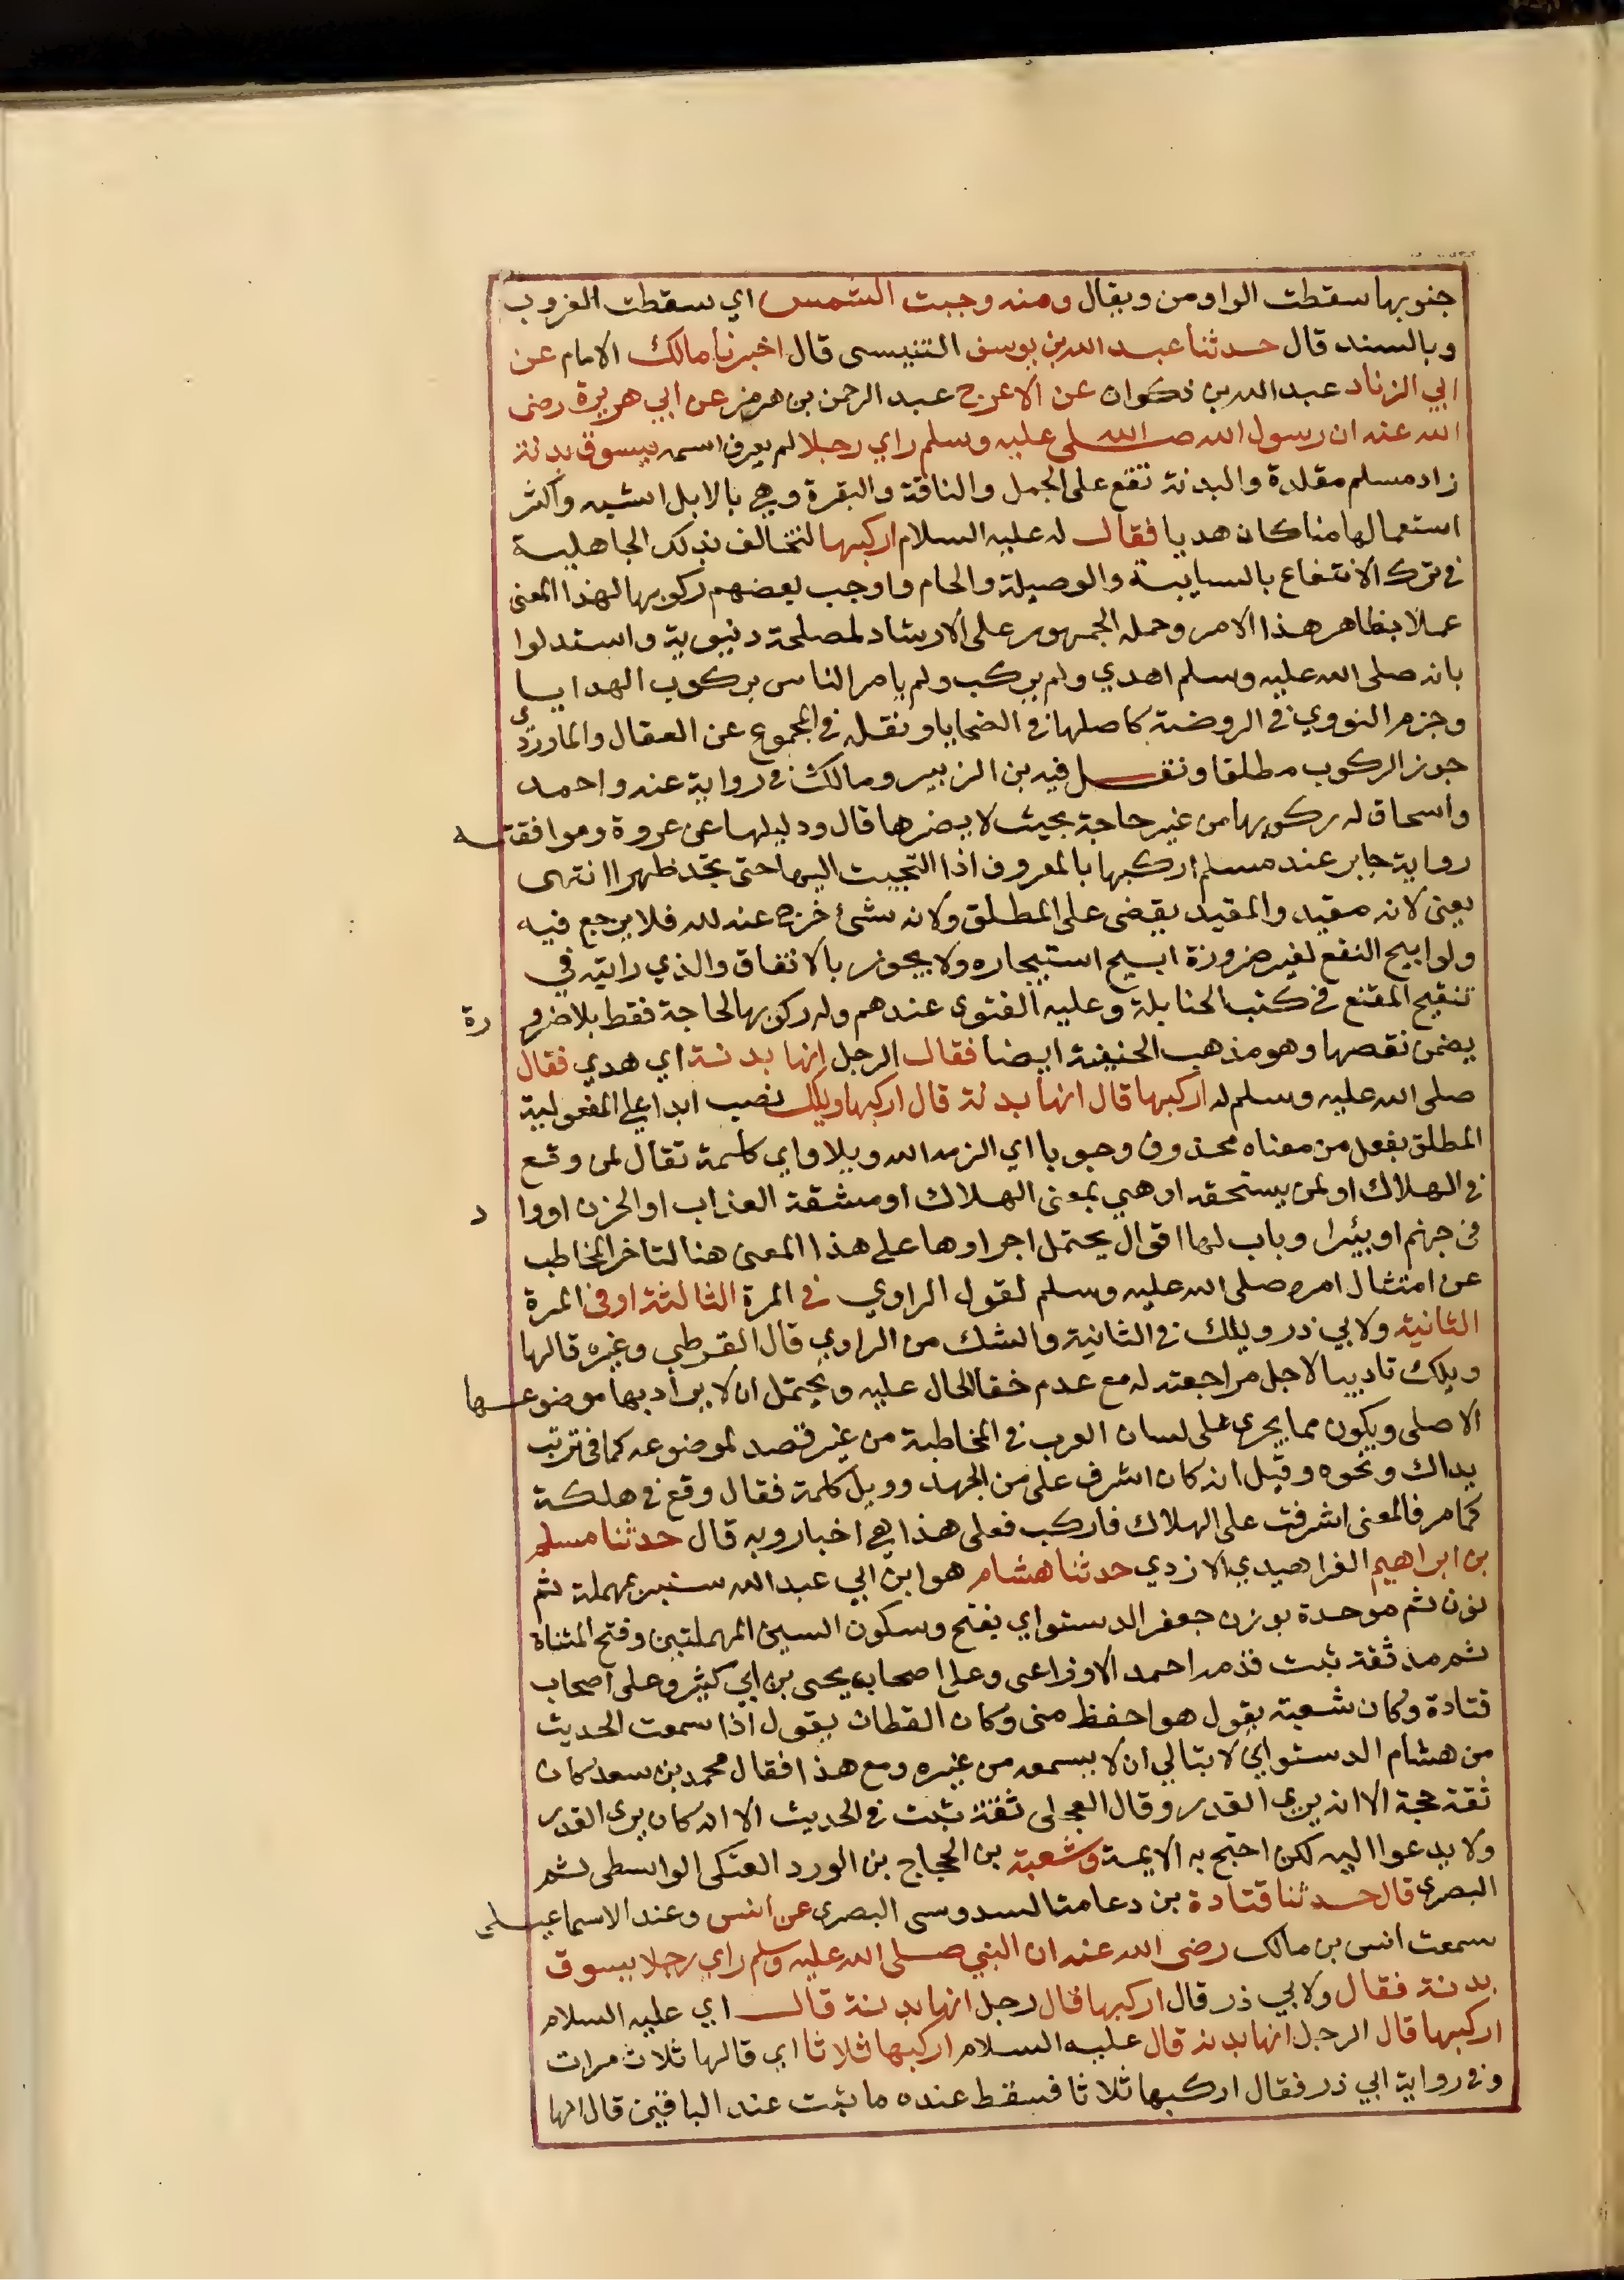 جنوبها سقطت الواو من ويقال ومنه وجبت الشمس اي سقطت الغروب
وبالسند قال حدثنا عبد الله بن يوسف التنيسى قال اخبرنا مالك الامام عن
ابي الزناد عبد الله بن ذكوان عن الاعرج عبد الرحمن بن هرمز عن ابي هريرة رضى
الله عنه ان رسول الله صلى الله عليه وسلم راي رجلا لم يعرف اسمه يسوق بدنة
زاد مسلم مقلدة والبدنة تقع على الجمل والناقة والبقرة وهي بالابل اشبه واكثر
استعمالها منا كان هديا فقال له عليه السلام اركبها لتخالف بذلك الجاهلية
في ترك الانتفاع بالسايبة والوصيلة والحام واوجب بعضهم ركوبها لهذا المعنى
عملا بظاهر هذا الامر وحمله الجمهور على الارشاد لمصلحة دنيوية واستدلوا
بانه صلى الله عليه وسلم اهدي ولم يركب ولم يامر الناس بركوب الهدايا
وجزم النووي في الروضة كاصلها في الضحايا ونقله في المجموع عن القفال والماوردى
جوز الركوب مطلقا ونقل فيه بن الزبير ومالك في رواية عنه واحمد
واسحاق له ركوبها من غير حاجة بحيث لا يضرها قال ودليلها عن عروة وموافقته
رواية جابر عند مسلم اركبها بالمعروف اذا التجيت اليها حتى تجد ظهرا انتهى
يعنى لانه مقيد والمقيد يقضى على المطلق ولانه شئ خرج عنه لله فلا يرجع فيه
ولو ابيح النفع لغير ضرورة ابيح استيجاره ولا يجوز بالاتفاق والذي رايته في
تنقيح المقنع في كتب الحنابلة وعليه الفتوى عندهم وله ركوبها لحاجة فقط بلا ضرورة
يضمن نقصها وهو مذهب الحنيفة ايضا فقال الرجل انها بدنة اي هدي فقال
صلى الله عليه وسلم له اركبها قال انها بدنة قال اركبها ويلك نصب ابدا على المفعولية
المطلق بفعل من معناه محذوف وجوبا اي الزمه الله ويلا واي كلمة تقال لمن وقع
في الهلاك او لمن يستحقه او هي بمعنى الهلاك او مشقة العذاب او الحزن او واد
فى جهنم او بئرا وباب لها اقوال يحتمل اجراوها على هذا المعنى هنا لتاخر المخاطب
عن امتثال امره صلى الله عليه وسلم لقول الراوي في المرة الثالثة او فى المرة
الثانية ولابي ذر ويلك في الثانية والشك من الراوي قال القرطبي وغيره قالها
ويلك تاديبا لاجل مراجعته له مع عدم خفا الحال عليه ويحتمل ان لا يراد بها موضوعها
الاصلى ويكون مما يجرى على لسان العرب في المخاطبة من غير قصد لموضوعه كما فى تربت
يداك ونحوه وقيل انه كان اشرف على من الجهد وويل كلمة فقال وقع في هلكة
كما مر فالمعنى اشرفت على الهلاك فاركب فعلى هذا هي اخبار وبه قال حدثنا مسلم
بن ابراهيم الفراهيدي الازدي حدثنا هشام هو ابن ابي عبد الله سنبر بمهملة ثم
نون ثم موحدة بوزن جعفر الدستواي بفتح وسكون السين المهملتين وفتح المثناة
ثم مد ثقة ثبت قدمه احمد الاوزاعى وعلى اصحاب يحيى بن ابي كثير وعلى اصحاب
قتادة وكان شعبة يقول هو احفظ منى وكان القطان يقول اذا سمعت الحديث
من هشام الدستواي لا تبالي ان لا يسمعه من غيره ومع هذا فقال محمد بن سعد كان
ثقة حجة الا انه يرى القدر وقال العجلى ثقة ثبت في الحديث الا انه كان يرى القدر
ولا يدعوا اليه لكن احتج به الايمة وشعبة بن الحجاج بن الورد العتكى الواسطى ثم
البصرى قال حدثنا قتادة بن دعامة السدوسى البصرى عن انس وعند الاسماعيلى
سمعت انس بن مالك رضى الله عنه ان النبي صلى الله عليه وسلم راي رجلا يسوق
بدنة فقال ولابي ذر قال اركبها قال رجل انها بدنة قال اي عليه السلام
اركبها قال الرجل انها بدنه قال عليه السلام اركبها ثلاثا اي قالها ثلاث مرات
وفي رواية ابي ذر فقال اركبها ثلاثا فسقط عنده ما ثبت عند الباقين قال انها